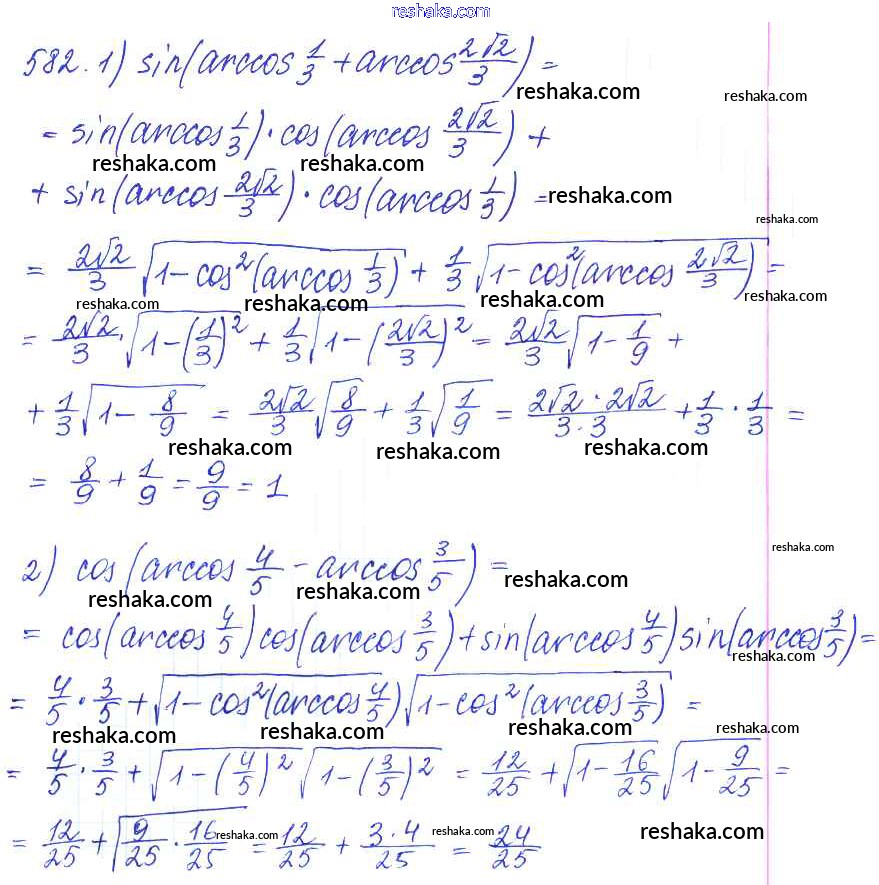 reshaka.com
582. 1) sin(arccos 1/3 + arccos 2√2/3) =
reshaka.com reshaka.com
= sin(arccos 1/3) · cos(arccos 2√2/3) +
reshaka.com reshaka.com
+ sin(arccos 2√2/3) · cos(arccos 1/3) =
reshaka.com
reshaka.com
= 2√2/3 √(1 - cos²(arccos 1/3)) + 1/3 √(1 - cos²(arccos 2√2/3)) =
reshaka.com reshaka.com reshaka.com reshaka.com
= 2√2/3 · √(1 - (1/3)²) + 1/3 √(1 - (2√2/3)²) = 2√2/3 √(1 - 1/9) +
+ 1/3 √(1 - 8/9) = 2√2/3 √(8/9) + 1/3 √(1/9) = 2√2 · 2√2/3·3 + 1/3 · 1/3 =
reshaka.com reshaka.com reshaka.com
= 8/9 + 1/9 = 9/9 = 1
reshaka.com
2) cos(arccos 4/5 - arccos 3/5) =
reshaka.com reshaka.com reshaka.com
= cos(arccos 4/5) cos(arccos 3/5) + sin(arccos 4/5) sin(arccos 3/5) =
reshaka.com
= 4/5 · 3/5 + √(1 - cos²(arccos 4/5)) √(1 - cos²(arccos 3/5)) =
reshaka.com reshaka.com reshaka.com reshaka.com
= 4/5 · 3/5 + √(1 - (4/5)²) √(1 - (3/5)²) = 12/25 + √(1 - 16/25) √(1 - 9/25) =
= 12/25 + √(9/25 · 16/25) = 12/25 + 3·4/25 = 24/25
reshaka.com reshaka.com reshaka.com